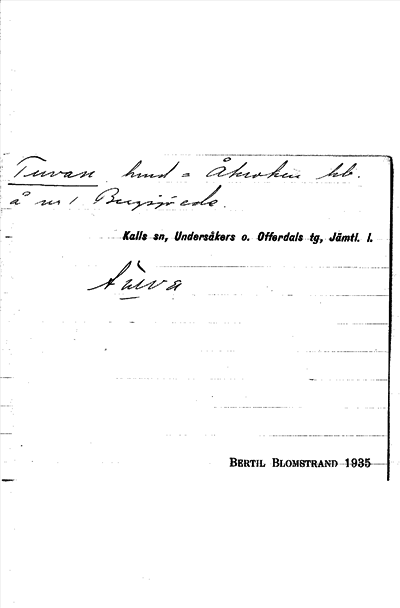 Tuvan hmd = Åkroken bb.
å nr 1 Bergsjöede.
Kalls sn, Undersåkers o. Offerdals tg, Jämtl. l.
tùva
BERTIL BLOMSTRAND 1935